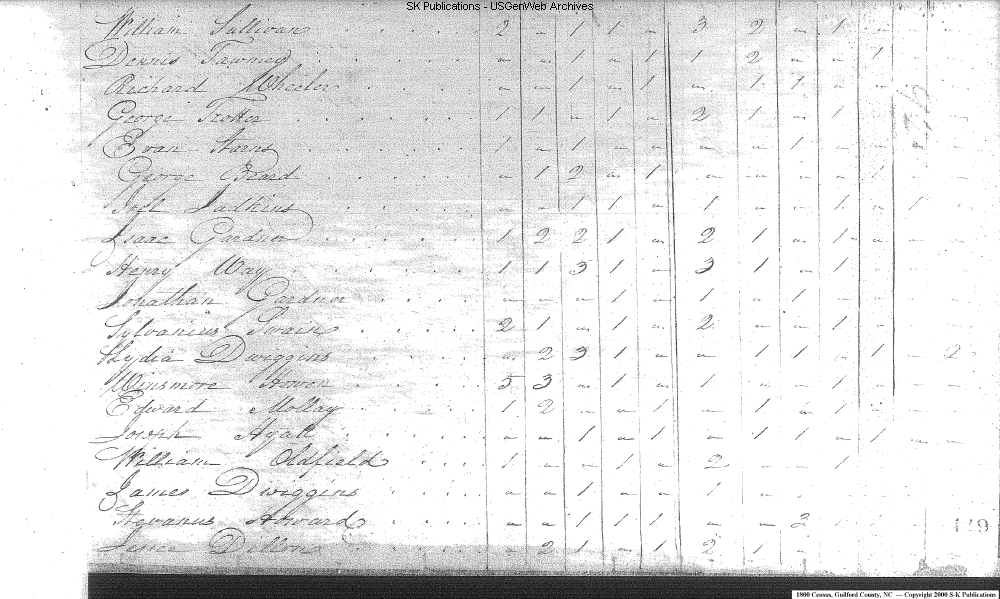 SK Publications - USGenWeb Archives
William Sullivan 2 - 1 1 - 3 2 - 1 -
Dennis - - 1 - 1 1 2 - - 1
Richard Wheeler - - 1 - 1 - 1 1 -
George Trotter 1 1 - 1 - 2 1 - 1 -
Evan 1 - 1 - - - - 1 - -
George Beard - 1 2 - 1 - - - - 1
Joel Judkins - - 1 1 - 1 - - 1 - 1
Isaac Gardner 1 2 2 1 - 2 1 - 1 - -
Henry Way 1 1 3 1 - 3 1 - 1 -
Jonathan Gardner - - - 1 - 1 - 1 - -
Sylvanius Swain 2 1 - 1 - 2 - - 1 -
Lydia Dwiggins - 2 3 1 - - 1 1 - 1 - 2
Winsmore 5 3 - 1 - 1 - - 1 -
Edward 1 2 - - 1 - 1 - 1 -
Joseph Hyatt - - 1 - 1 - 1 1 - 1 - -
William Oldfield 1 - - 1 - 2 - - 1
James Dwiggins - - 1 - - 1 -
Howard - - 1 1 1 - - 3
Dillon - 2 1 - 1 2 1 -
179
1800 Census, Guilford County, NC — Copyright 2000 S-K Publications